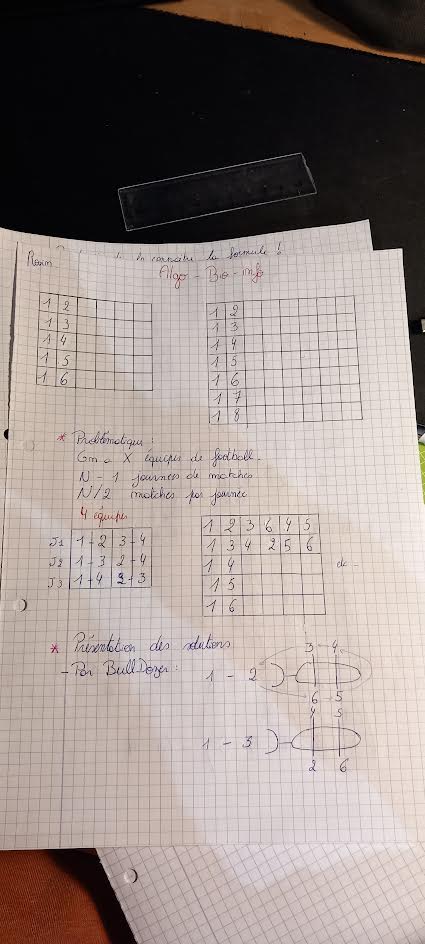 connaître la formule !
Algo - Bio - info
1 2
1 3
1 4
1 5
1 6
1 2
1 3
1 4
1 5
1 6
1 7
1 8
* Problématique :
On a X équipes de football.
N - 1 journées de matches
N/2 matches par journée
4 équipes
J1 1 - 2 3 - 4
J2 1 - 3 2 - 4
J3 1 - 4 2 - 3
1 2 3 6 4 5
1 3 4 2 5 6
1 4
1 5
1 6
* Présentation des solutions
- Par BullDozer :
3 4
1 - 2
6 5
4 5
1 - 3
2 6